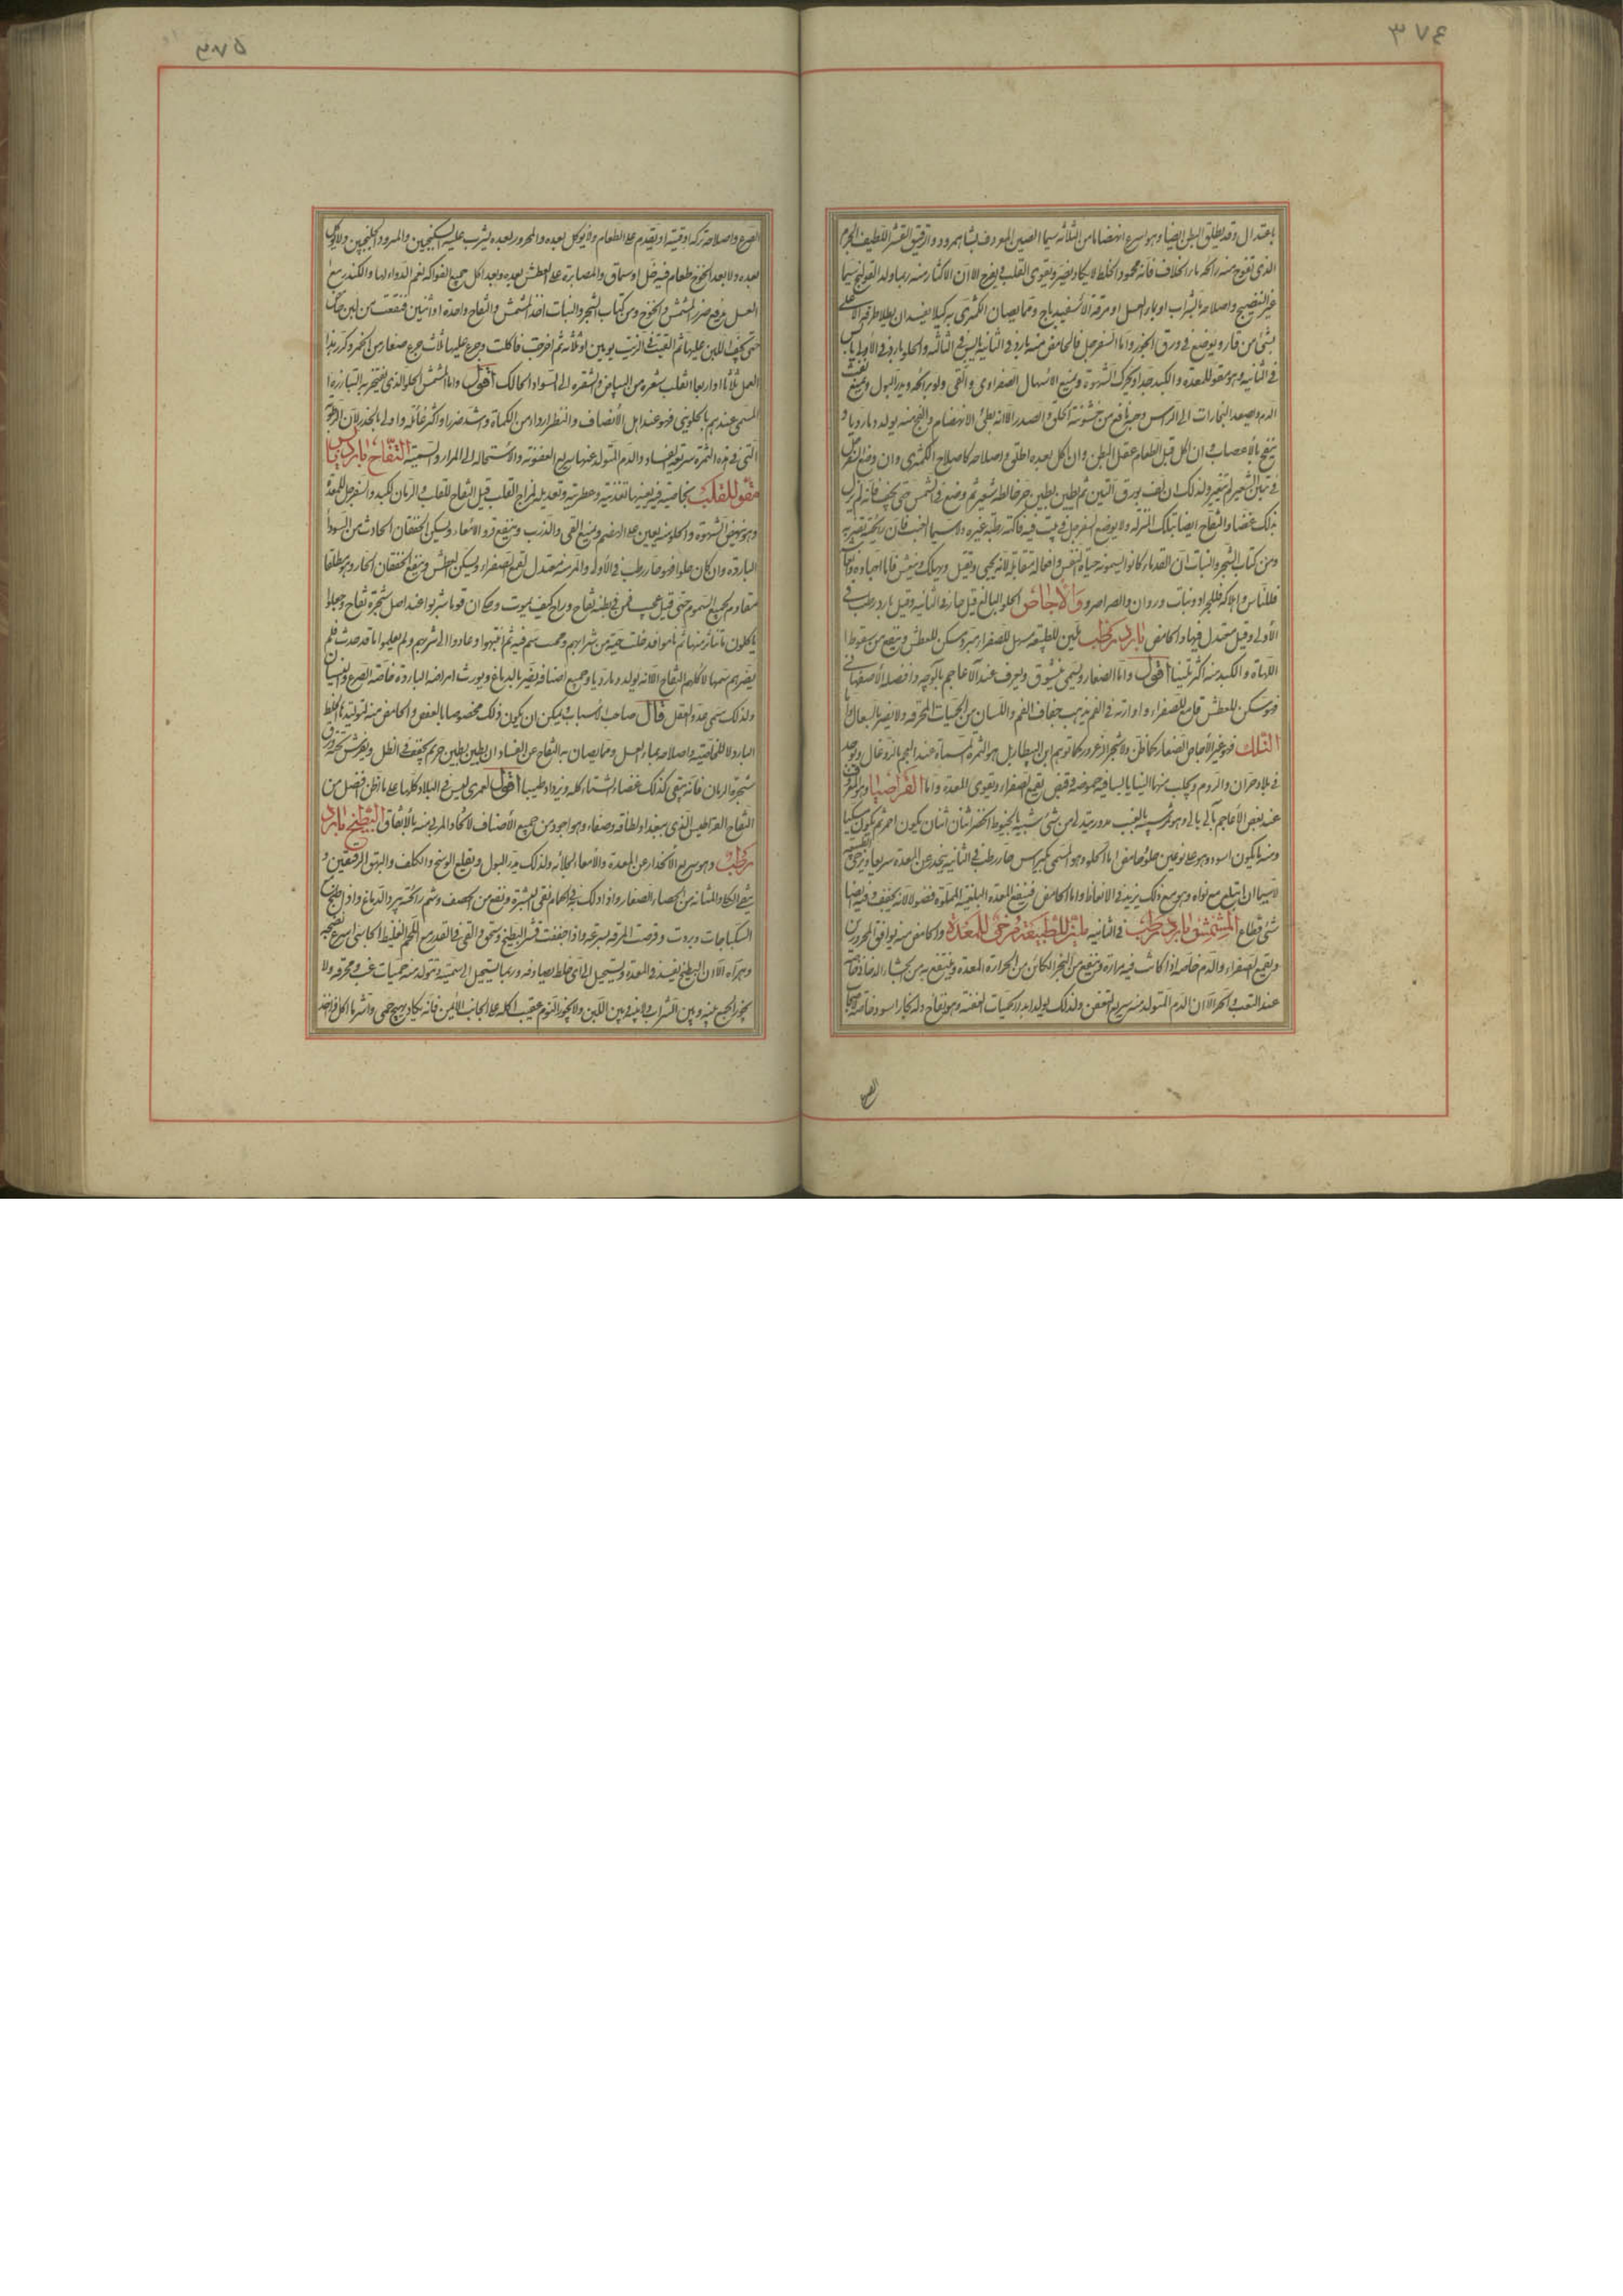 ٣٧٤
باعتدال وقد يطلق البطن ايضا وهو اسرع انهضاما من الثلاثة سيما الصينى المعروف بشاه امرود والرقيق القشر اللطيف الجرم
الذى تفوح منه رائحة ماء الخلاف فانه محمود الخلط لا يكاد يضر ويقوى القلب ويفرح الا ان الاكثار منه ربما ولد القولنج سيما
غير النضيج واصلاحه بالشراب او بماء العسل او مرقة الاسفيدباج ومما يصان الكمثرى به كيلا يفسد ان يطلا طرفه الاعلى
بشئ من قار ويوضع فى ورق الجوز واما السفرجل فالحامض منه بارد فى الثانية يابس فى الثالثة والحلو بارد فى الاولى يابس
فى الثانية وهو مقو للمعدة والكبد جدا ويحرك الشهوة ويمنع الاسهال الصفراوى والقى ولو برائحته ويدر البول ويمنع نفث
الدم وصعود البخارات الى الراس وحبه نافع من خشونة الحلق والصدر الا انه بطئ الانهضام والفج منه يولد دما رديا و
ينفخ بالاعصاب وان اكل قبل الطعام عقل البطن وان اكل بعده اطلق واصلاحه كاصلاح الكمثرى وان وضع السفرجل
فى تبن الشعير لم يتغير ولذلك ان لف بورق التين ثم طين بطين حر خالطه شعير ثم وضع فى الشمس حتى يجف فانه لم يزل
بذلك غضا والتفاح ايضا بتلك المنزلة ولا يوضع السفرجل فى بيت فيه فاكهة رطبة غيره ولا سيما العنب فان رائحته تضر به
ومن كتاب الشجر والنبات ان القدماء كانوا يسمونه حياة النفس وافعاله متقابلة لانه يحيى ويقتل ويهلك وينعش فاما احياؤه
والاجاص الحلو البالغ قيل حار فى الثانية وقيل بارد رطب فى
الاولى وقيل معتدل فيها والحامض بارد رطب يلين للطبيعة مسهل للصفراء مبرد مسكن للعطش وينفع من سقوط
اللهاة والكبد منه اكثر تليينا اقول واما الصغار ويسمى نيشوق ويعرف عند الاعاجم بالوچه وافضله الاصفهانى
فهو مسكن للعطش قامع للصفراء وادارته فى الفم يذهب جفاف الفم واللسان من الحميات المحرقة ولا يضر بالسعال واما
التلك فهو غير الاجاص الصغار كما ظن ولا شجر الزعرور كما توهم ابن البيطار بل هو الثمرة المسماة عند العجم بالزدغال ويوجد
فى بلاد حران والروم ويجلب منها الينا يابسا فيه حموضة وقبض يقمع الصفراء ويقوى المعدة واما القراصيا وهو المعروف
عند بعض الاعاجم بالى بالى وهو ثمر شبيه بالعنب مدور يتدلى من شئ شبيه بالخيوط الخضر اثنان اثنان يكون احمر ثم يكون
ومنه ما يكون اسود وهو على نوعين حلو وحامض اما الحلو وهو المسمى بكيراس حار رطب فى الثانية ينحدر عن المعدة سريعا ويرخى الطبيعة
لاسيما ان ابتلع مع نواه وهو مع ذلك يزيد فى الانعاظ واما الحامض فينفع المعدة البلغمية المملوة فضولا لانه يجفف وفيه ايضا
شئ قطاع المشمش بارد رطب فى الثانية ملين للطبيعة مرخى للمعدة والحامض منه يوافق المحرورين
ويقمع الصفراء والدم خاصة اذا كانت فيه مرارة وينفع من البخر الكائن من الحرارة المعدة وينتفع به من الجشاء الدخانى
عند التعب والحر الا ان الدم المتولد منه سريع التعفن ولذلك يولد ادمانه الحميات العفنة وهو نفاخ
الصرع
٣٧٥
الصرع واصلاحه تركه او قيئه او يقدم على الطعام ولا يوكل بعده والمحرور بعده يشرب عليه السكنجبين والمبرود الجلنجبين ولا يوكل
بعده ولا بعد الخوخ طعام فيه خل او سماق والمصابرة على العطش بعده وبعد اكل جميع الفواكه نعم الدواء لها والكندر مع
العسل يدفع ضرر المشمش والخوخ ومن كتاب الشجر والنبات اخذ المشمش والتفاح واحدة او اثنين فنقعت من لبن
حتى يجف اللبن عليها ثم القيت فى الزيت يومين او ثلاثة ثم اخرجت فاكلت وجرع عليها ثلاث جرع صغار من الخمر وكرر هذا
العمل ثلاثا او اربعا انقلب شعره من البياض والشقرة الى السواد الحالك اقول واما المشمش الحلو الذى يفتخر به التبازرة
المسمى عندهم بالجلوينى فهو عند اهل الانصاف والنظر اردا من الكماة واشد ضررا واكثر غائلة واولى بالحذر لان الرطوبة
التى فى هذه الثمرة سريعة الفساد والدم المتولد عنها سريع العفونة والاستحالة الى المرار والسمية التفاح بارد يابس
مقو للقلب بخاصية فيه يعينها تغذيته وعطريته وتعديله لمزاج القلب قيل التفاح للقلب والرمان للكبد والسفرجل للمعدة
وهو ينهض الشهوة والحلو منه يعين على الهضم ويمنع القى والذرب وينفع قروح الامعاء ويسكن الخفقان الحادث من السوداء
الباردة وان كان حلوا فهو حار رطب فى الاولى والمز منه معتدل يقمع الصفراء ويسكن العطش وينفع الخفقان الحار وهو مطلقا
مقاوم لجميع السموم حتى قيل عجب فمن فى بطنه تفاح وراح كيف يموت وحكى ان قوما شربوا عند اصل شجرة تفاح وجعلوا
ياكلون ما تناثر منها ثم ناموا فدخلت حية من شرابهم ومجت سم فيه ثم انتبهوا وعادوا الى شربهم ولم يعلموا ما قد حدث فلم
يضرهم سمها لاكلهم التفاح الا انه يولد دما رديا وجميع اصنافه يضر بالدماغ ويورث امراضه الباردة خاصة الصرع والنسيان
ولذلك سمى عدو العقل قال صاحب الاسباب ويمكن ان يكون ذلك مخصوصا بالعفص والحامض منه لتوليدها الخلط
البارد لا للخاصية واصلاحه بماء العسل ومما يصان به التفاح عن الفساد ان يطين بطين حر ثم يجفف فى الظل ويفرش تحته ورق
شجرة الرمان فانه يبقى كذلك غضا الشتاء كله ويزداد طيبا اقول لعمرى ليس فى البلاد كلها على ما اظن افضل من
التفاح الذى ببغداد لطافة وصفاء وهو اجود من جميع الاصناف لا يكاد المربى منه بالاتفاق البطيخ بارد
رطب وهو سريع الانحدار عن المعدة والامعاء لجلائه ولذلك يدر البول ويقلع الوسخ والكلف والبهق الرقيقين و
ينقى الكلى والمثانة من الحصاة الصغار واذا دلك فى الحمام نقى البشرة ونفع من الحصف وشم رائحته يبرد الدماغ واذا طبخ
السكباجات وبردت وقرصت المرقة بسرعة واذا جففت قشر البطيخ وسحق والقى فى القدر مع اللحم الغليظ الجاسى اسرع نضجه
وهراه الا ان البطيخ يفسد فى المعدة ويستحيل الى اى خلط يصادفه وربما يستحيل الى سمية ويتولد منه حميات غب ومحرقة ولا
يجوز الجمع بينه وبين الشراب ولا بينه وبين اللبن ولا يجوز النوم عقيب اكله على الجانب الايمن فانه يكاد يهيج حمى واشر ما اكل